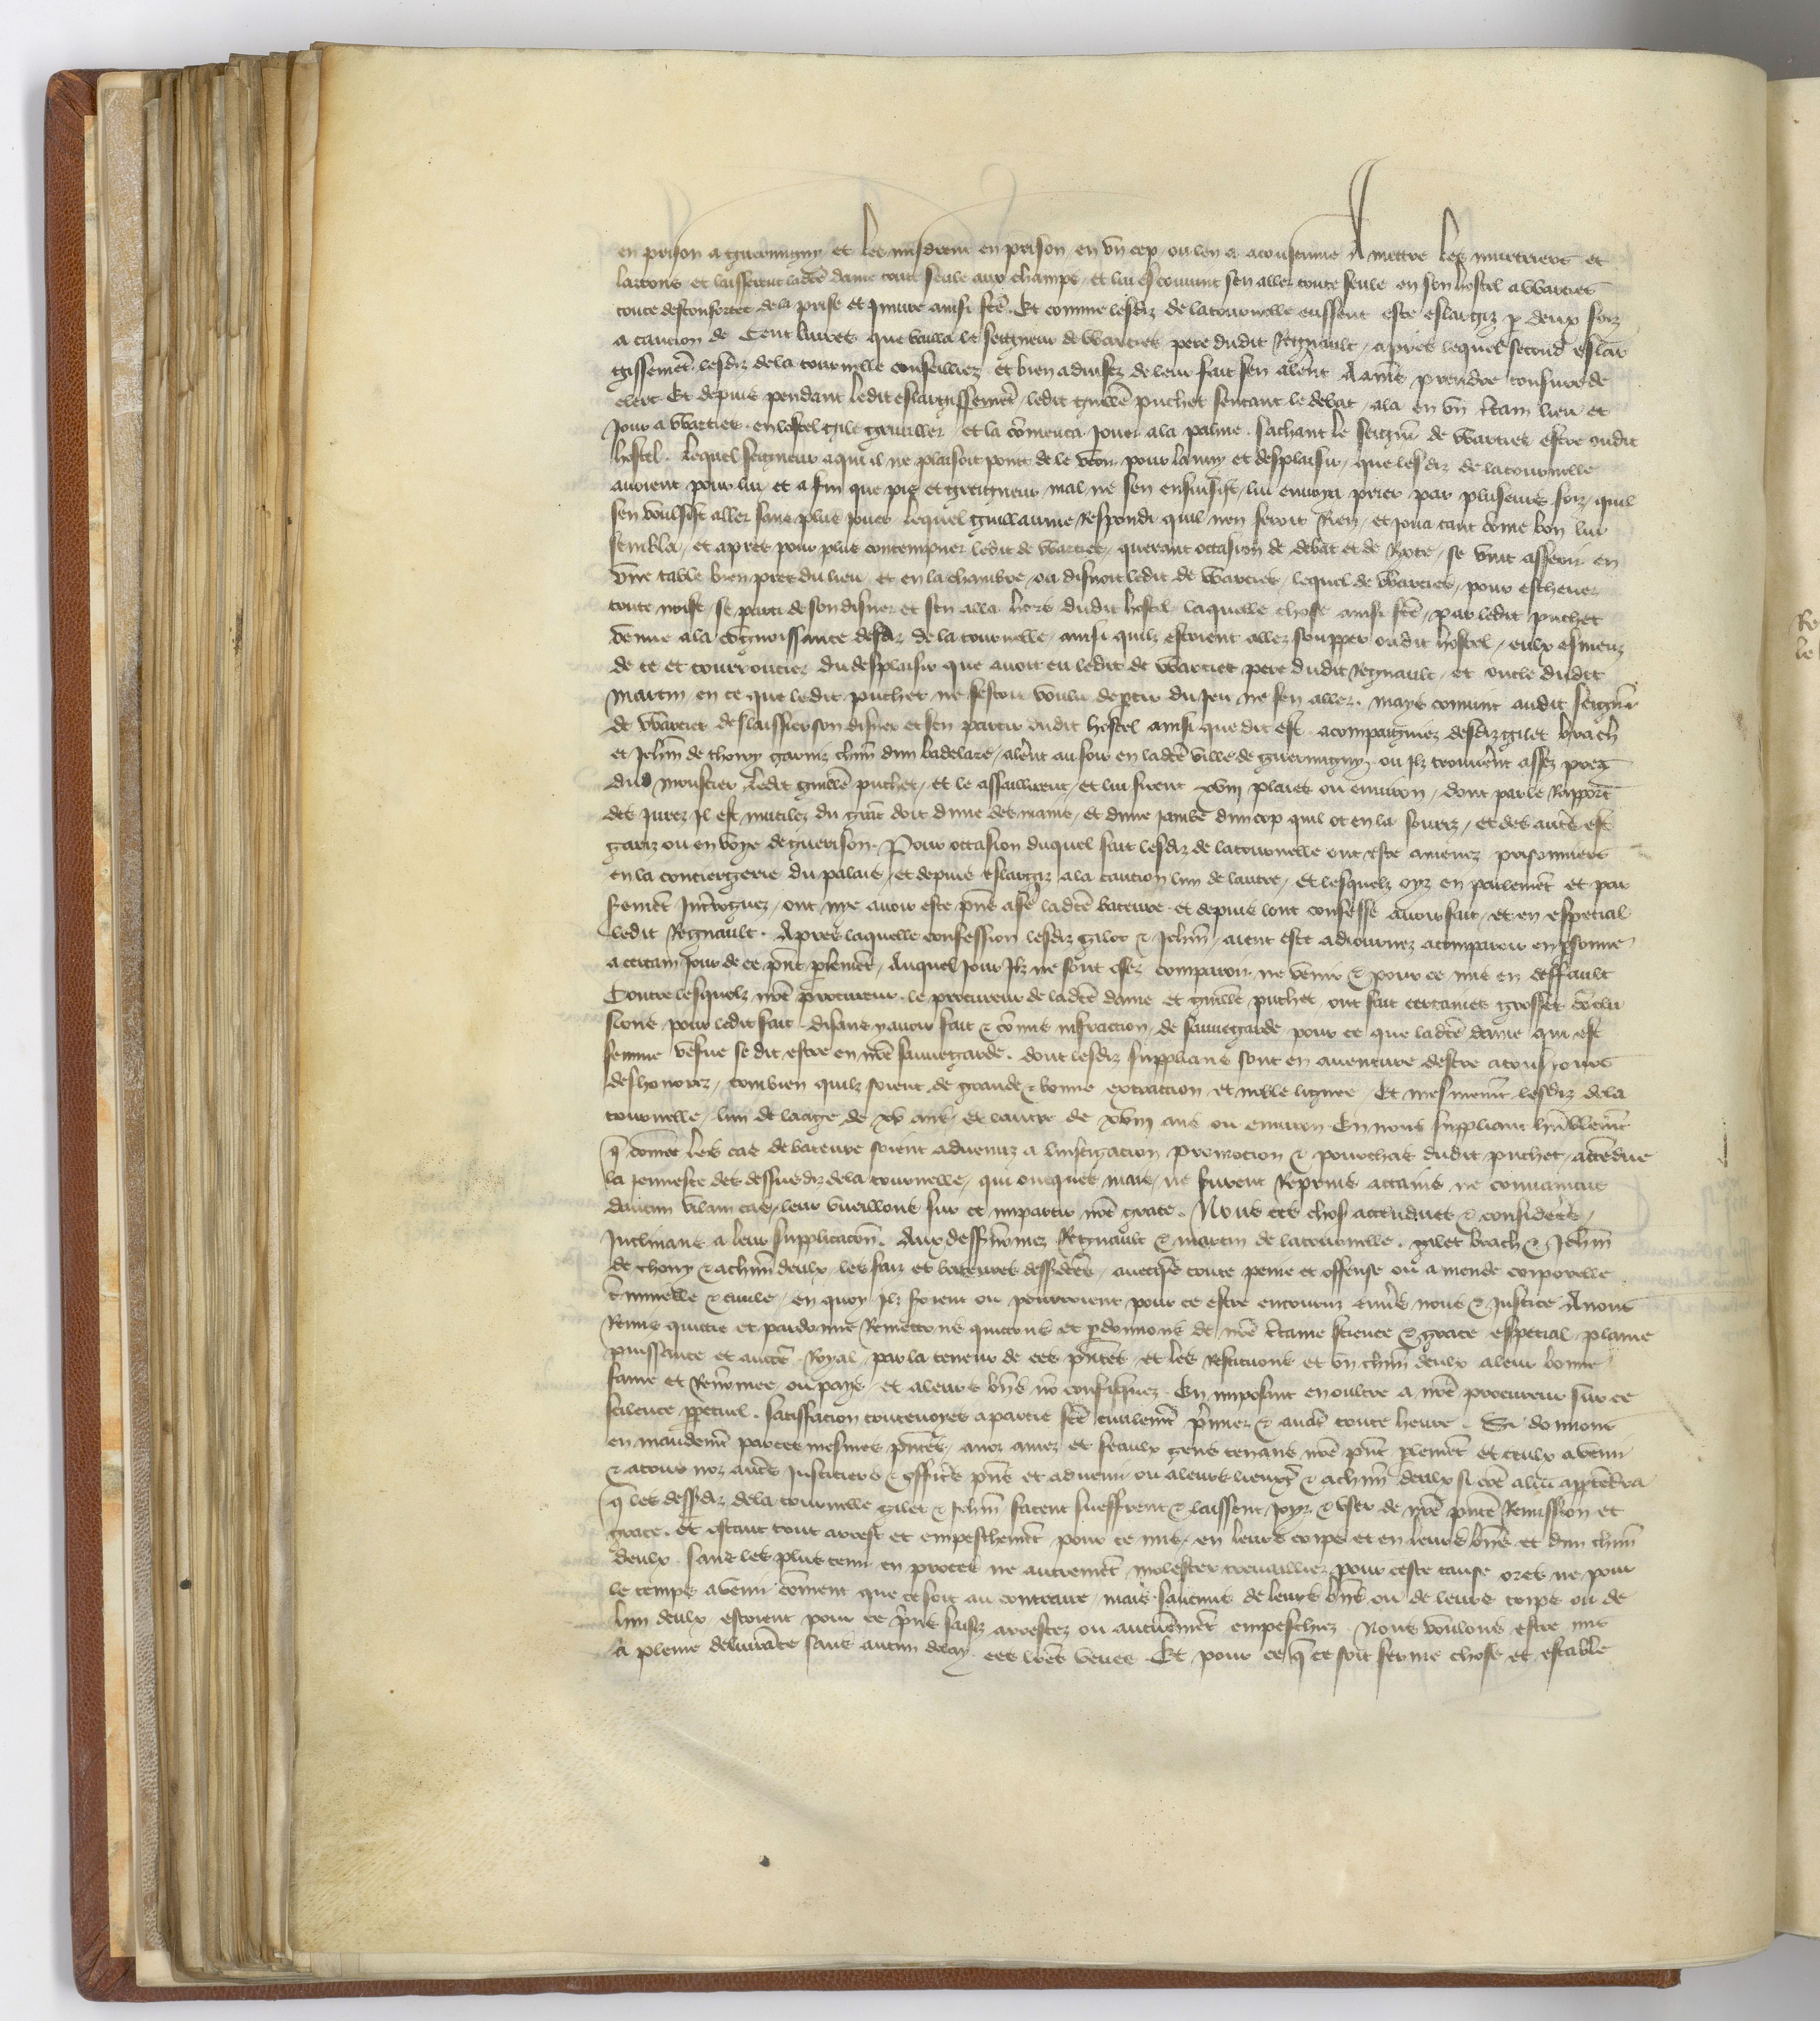 en prison a guermigny et les misdrent en prison en un cep ou len a acoustume A mettre les murtriers et
larrons et laisserent ladce dame toute seule aux champs et lui escouvint sen aller toute seule en son hostel a Warties
toute desconfortee de la prise et Iniure ainsi fce. Et comme lesdiz de latournelle eussent este eslargiz p deux foiz
a caucion de Cent livres que bailla le seigneur de Warties pere dudit Regnault, apres lequel second eslar
gissemet lesdiz dela tournelle conseilliez et bien advisez de leur fait sen alerent A amiens prendre tonsure de
clerc Et depuis pendant ledit eslargissemet ledit guille puchet sentant le debat, ala en un ctain lieu et
Jour a Warties en lostel gile et la comenca Jouer ala palme. Sachant le seigneur de Warties estre oudit
hostel. Lequel seigneur aqui il ne plaisoit point de le veoir pour lanuy et desplaisir, que lesdiz de latournelle
avoient pour lui et afin que pis et greigneur mal ne sen ensuisist, lui envoya prier par pluseurs foiz, quil
sen voulsist aller sans plus jouer Lequel guillaume respondi quil nen feroit Rien, et joua tant come bon lui
sembla, et apres pour plus contempner ledit de Warties, querant occasion de debat et de Rixe, se vint asseoir en
une table bien pres du lieu et en la chambre ou disnoit ledit de Warties, lequel de Warties, pour eschever
toute noise, se parti de son disner et sen alla hors dudit hostel, laquelle chose ainsi fce, par ledit puchet
venue ala congnoissance desdiz de la tournelle, ainsi quilz estoient allez soupper oudit hostel, eulx esmeuz
de ce et courrouciez du desplaisir que avoit eu ledit de Warties pere dudit Regnault, et oncle dudit
martin, en ce que ledit puchet ne sestoit voulu deptir du Jeu ne sen aller. mays convint audit seigneur
de Warties delaissier son disner et sen partir oudit hostel ainsi que dit est, acompaigniez desdiz gilet brach
et Jehan de thory garniz chun dun badelare, alerent au soir en ladce ville de guermigny ou Ilz trouverent assez prez
du moustier ledit guille puchet, et le assaillirent, et lui firent xviii plaies ou environ, dont par le Rapport
des Jurez Il est mutilez du grant doit dune des mains, et dune jambe dun cop quil ot en la souriz, et des autres est
gariz ou en voye de guerison. Pour occasion duquel fait lesdiz de latournelle ont este amenez prisonniers
en la conciergerie du palais, et depuis eslargiz ala caution lun de lautre, et lesquelz oyz en parlemet et par
serment Interroguez, ont nye avoir este pns a fe ladce bateure et depuis lont confesse avoir fait, et en especial
ledit Regnault. Apres laquelle confession lesdiz gilet & Jehan, aient este adiournez acomparoir en psonne
a certain Jour de ce pnt plement, Auquel jour Ilz ne sont osez comparoir ne venir & pour ce mis en deffault
Contre lesquelz nre procureur le procureur de ladce dame et guille puchet ont fait certaines grosses conclu
sions pour ledit fait disans yavoir fait & comis infraction de sauvegarde pour ce que ladce dame qui est
femme vesve se dit estre en nre sauvegarde. dont lesdiz supplians sont en aventure destre atousjours
deshonorez, combien quilz soient de grande & bonne extraction et noble lignee. Et mesmemet lesdiz dela
tournelle, lun de laage de xv ans et lautre de xviii ans ou environ En nous suppliant humblement
q comme les cas de bateure soient advenuz a linstigacion promocion & pourchas dudit puchet, attendue
la jeunesse des dessusdiz dela tournelle, qui oncques mais, ne furent Reprins attains ne convaincus
daucun vilain cas, leur vueillons sur ce impartir nre grace. Nous ces chos attendues & considerees,
Inclinans a leur supplicacion. Aux dessnommez Regnault & martin de latournelle. gilet brach & Jehan
de thory & achun deulx, les faiz et bateures dessdces, avecques toute peine et offense ou amende corporelle
criminelle & civile, en quoy Ilz soient ou pourroient pour ce estre encouruz envers nous & Justice Avons
Remis quictie et pardonne Remettons quictons et pdonnons de nre ctaine science & grace especial plaine
puissance et auctte Royal, par la teneur de ces pntes et les restituons et un chun deulx aleur bonne
fame et Renommee ou pays et aleurs biens no confisquez. En imposant en oultre a nre procureur sur ce
silence ppetuel. Satisfacion toutevoies apartie fce civilemet premier & avant toute heure. Si donnons
en mandemet par ces mesmes pntes, anoz amez et feaulx gens tenans nre pnt plement et ceulx avenir
& atous noz autres Justiciers & officiers pns et advenir ou aleurs lieuxtens & achun deulx si coe alui apptendra
q les dessdiz dela tournelle gilet & Jehan facent sueffrent & laissent Joyr & user de nre pnte Remission et
grace. et ostant tout arrest et empeschemet pour ce mis, en leurs corps et en leurs biens et dun chun
deulx. Sans les plus tenir en proces ne autremet molester travaillier pour ceste cause ores ne pour
le temps avenir coment que ce soit au contraire, mais saucuns de leurs biens ou de leurs corps ou de
lun deulx estoient pour ce prins saisiz arrestez ou autrement empeschiez. Nous voulons estre mis
a pleine delivrance sans aucun delay ces lres veues Et pour ce q ce soit ferme chose et estable